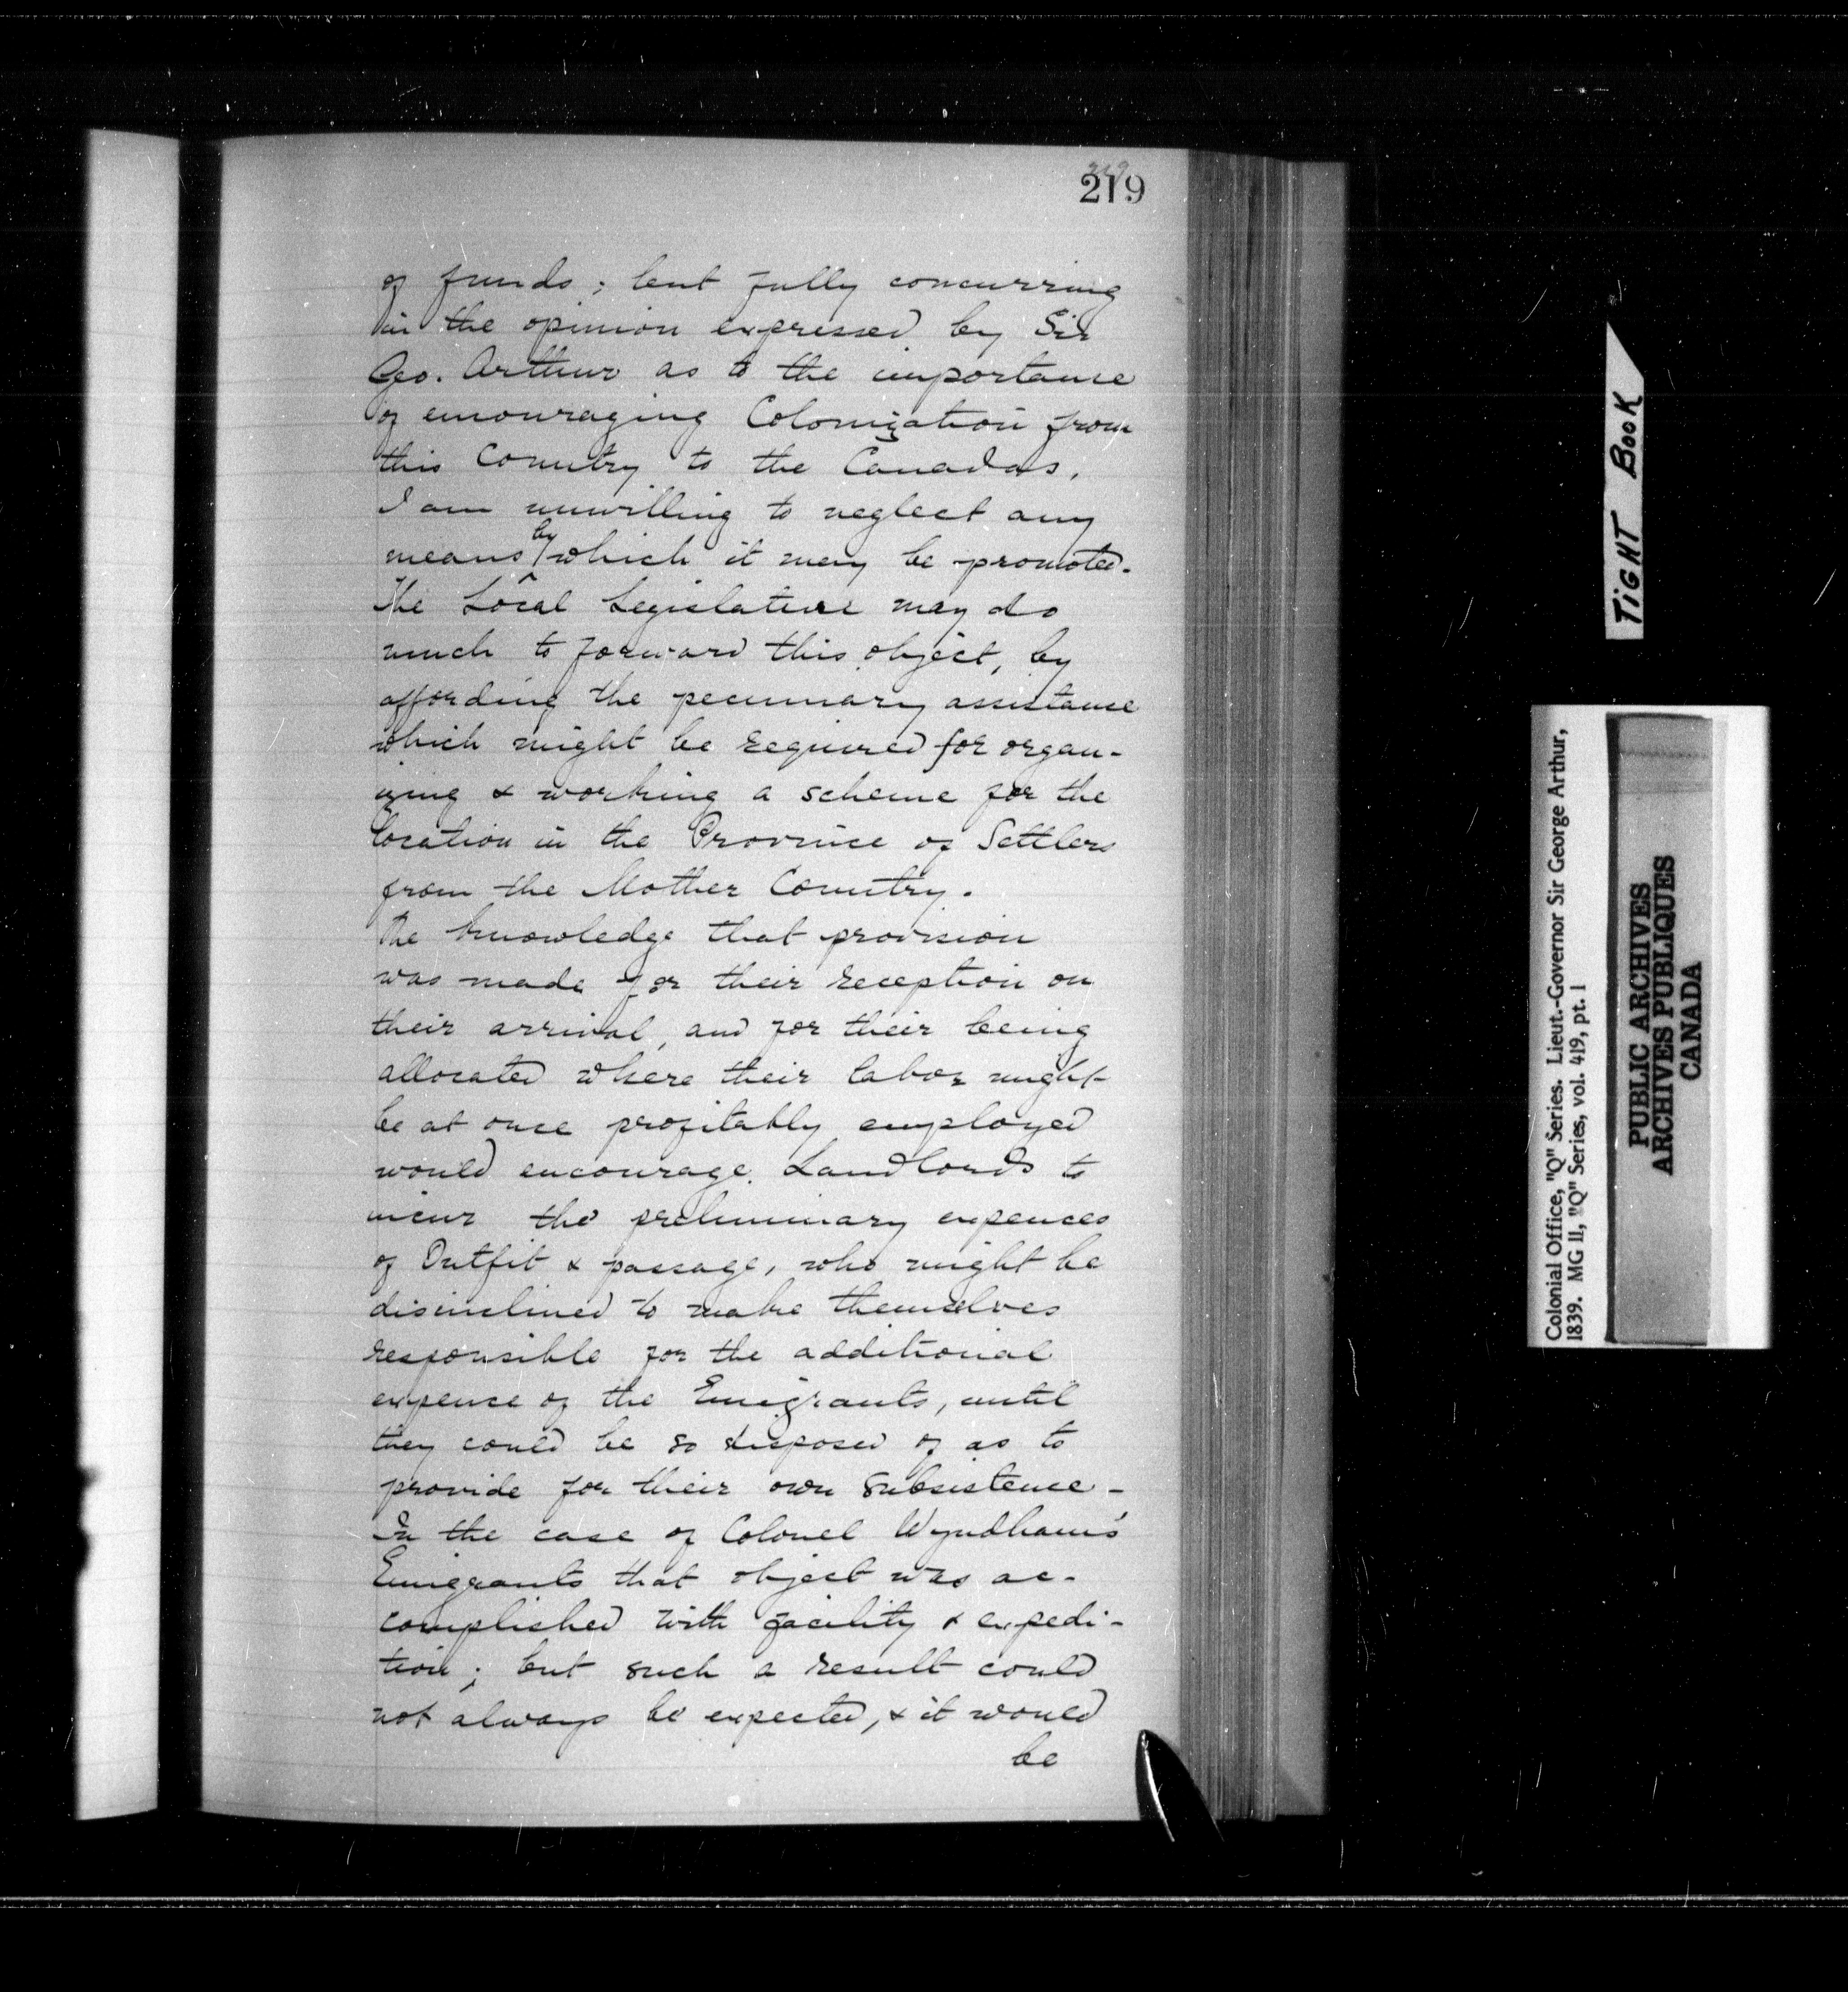 219
of funds; but fully concurring
in the opinion expressed by Sir
Geo. Arthur as to the importance
of encouraging Colonization from
this Country to the Canadas,
I am unwilling to neglect any
means by which it may be promoted.
The Local Legislature may do
much to forward this object, by
affording the pecuniary assistance
which might be required for organ-
izing & working a scheme for the
location in the Province of Settlers
from the Mother Country.
The knowledge that provision
was made for their reception on
their arrival, and for their being
allocated where their labor might
be at once profitably employed
would encourage Landlords to
incur the preliminary expences
of Outfit & passage, who might be
disinclined to make themselves
responsible for the additional
expence of the Emigrants, until
they could be so disposed of as to
provide for their own subsistence -
In the case of Colonel Wyndham's
Emigrants that object was ac-
complished with facility & expedi-
tion; but such a result could
not always be expected, & it would
be
TIGHT BOOK
Colonial Office, "Q" Series. Lieut.-Governor Sir George Arthur,
1839. MG 11, "Q" Series, vol. 419, pt. 1
PUBLIC ARCHIVES
ARCHIVES PUBLIQUES
CANADA